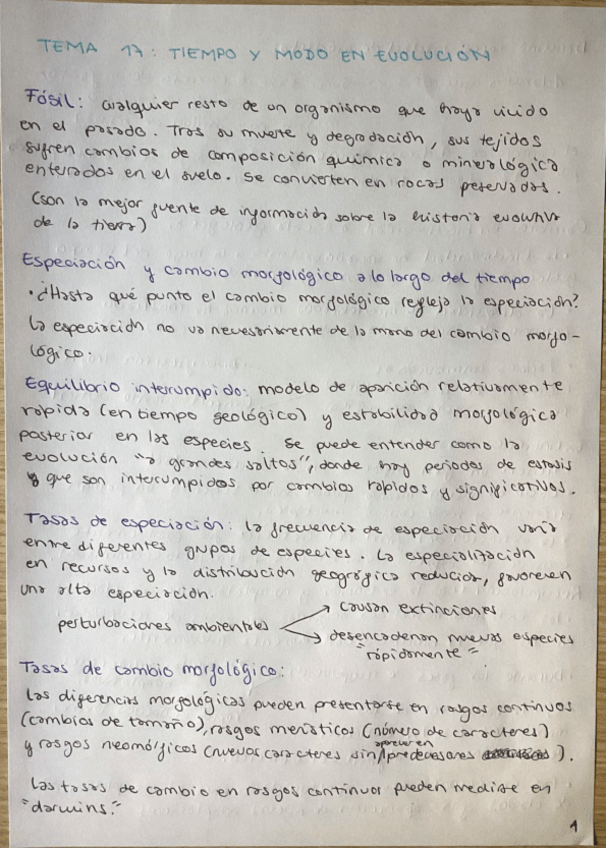 TEMA 17: TIEMPO Y MODO EN EVOLUCIÓN
Fósil: cualquier resto de un organismo que haya vivido
en el pasado. Tras su muerte y degradación, sus tejidos
sufren cambios de composición química o mineralógica
enterados en el suelo. Se convierten en rocas peservadas.
(son la mejor fuente de información sobre la historia evolutiva
de la tierra)
Especiación y cambio morfológico a lo largo del tiempo
• ¿Hasta qué punto el cambio morfológico refleja la especiación?
La especiación no va necesariamente de la mano del cambio morfo-
lógico.
Equilibrio interrumpido: modelo de aparición relativamente
rápida (en tiempo geológico) y estabilidad morfológica
posterior en las especies. Se puede entender como la
evolución "a grandes saltos", donde hay periodos de estasis
y que son interrumpidos por cambios rápidos y significativos.
Tasas de especiación: la frecuencia de especiación varía
entre diferentes grupos de especies. La especialización
en recursos y la distribución geográfica reducida, favorecen
una alta especiación.
perturbaciones ambientales → causan extinciones
→ desencadenan nuevas especies
"rápidamente"
Tasas de cambio morfológico:
Las diferencias morfológicas pueden presentarse en rasgos continuos
(cambios de tamaño), rasgos merísticos (número de caracteres)
y rasgos neomórficos (nuevos caracteres sin aparecer en predecesores).
Las tasas de cambio en rasgos continuos pueden medirse en
"darwins."
1